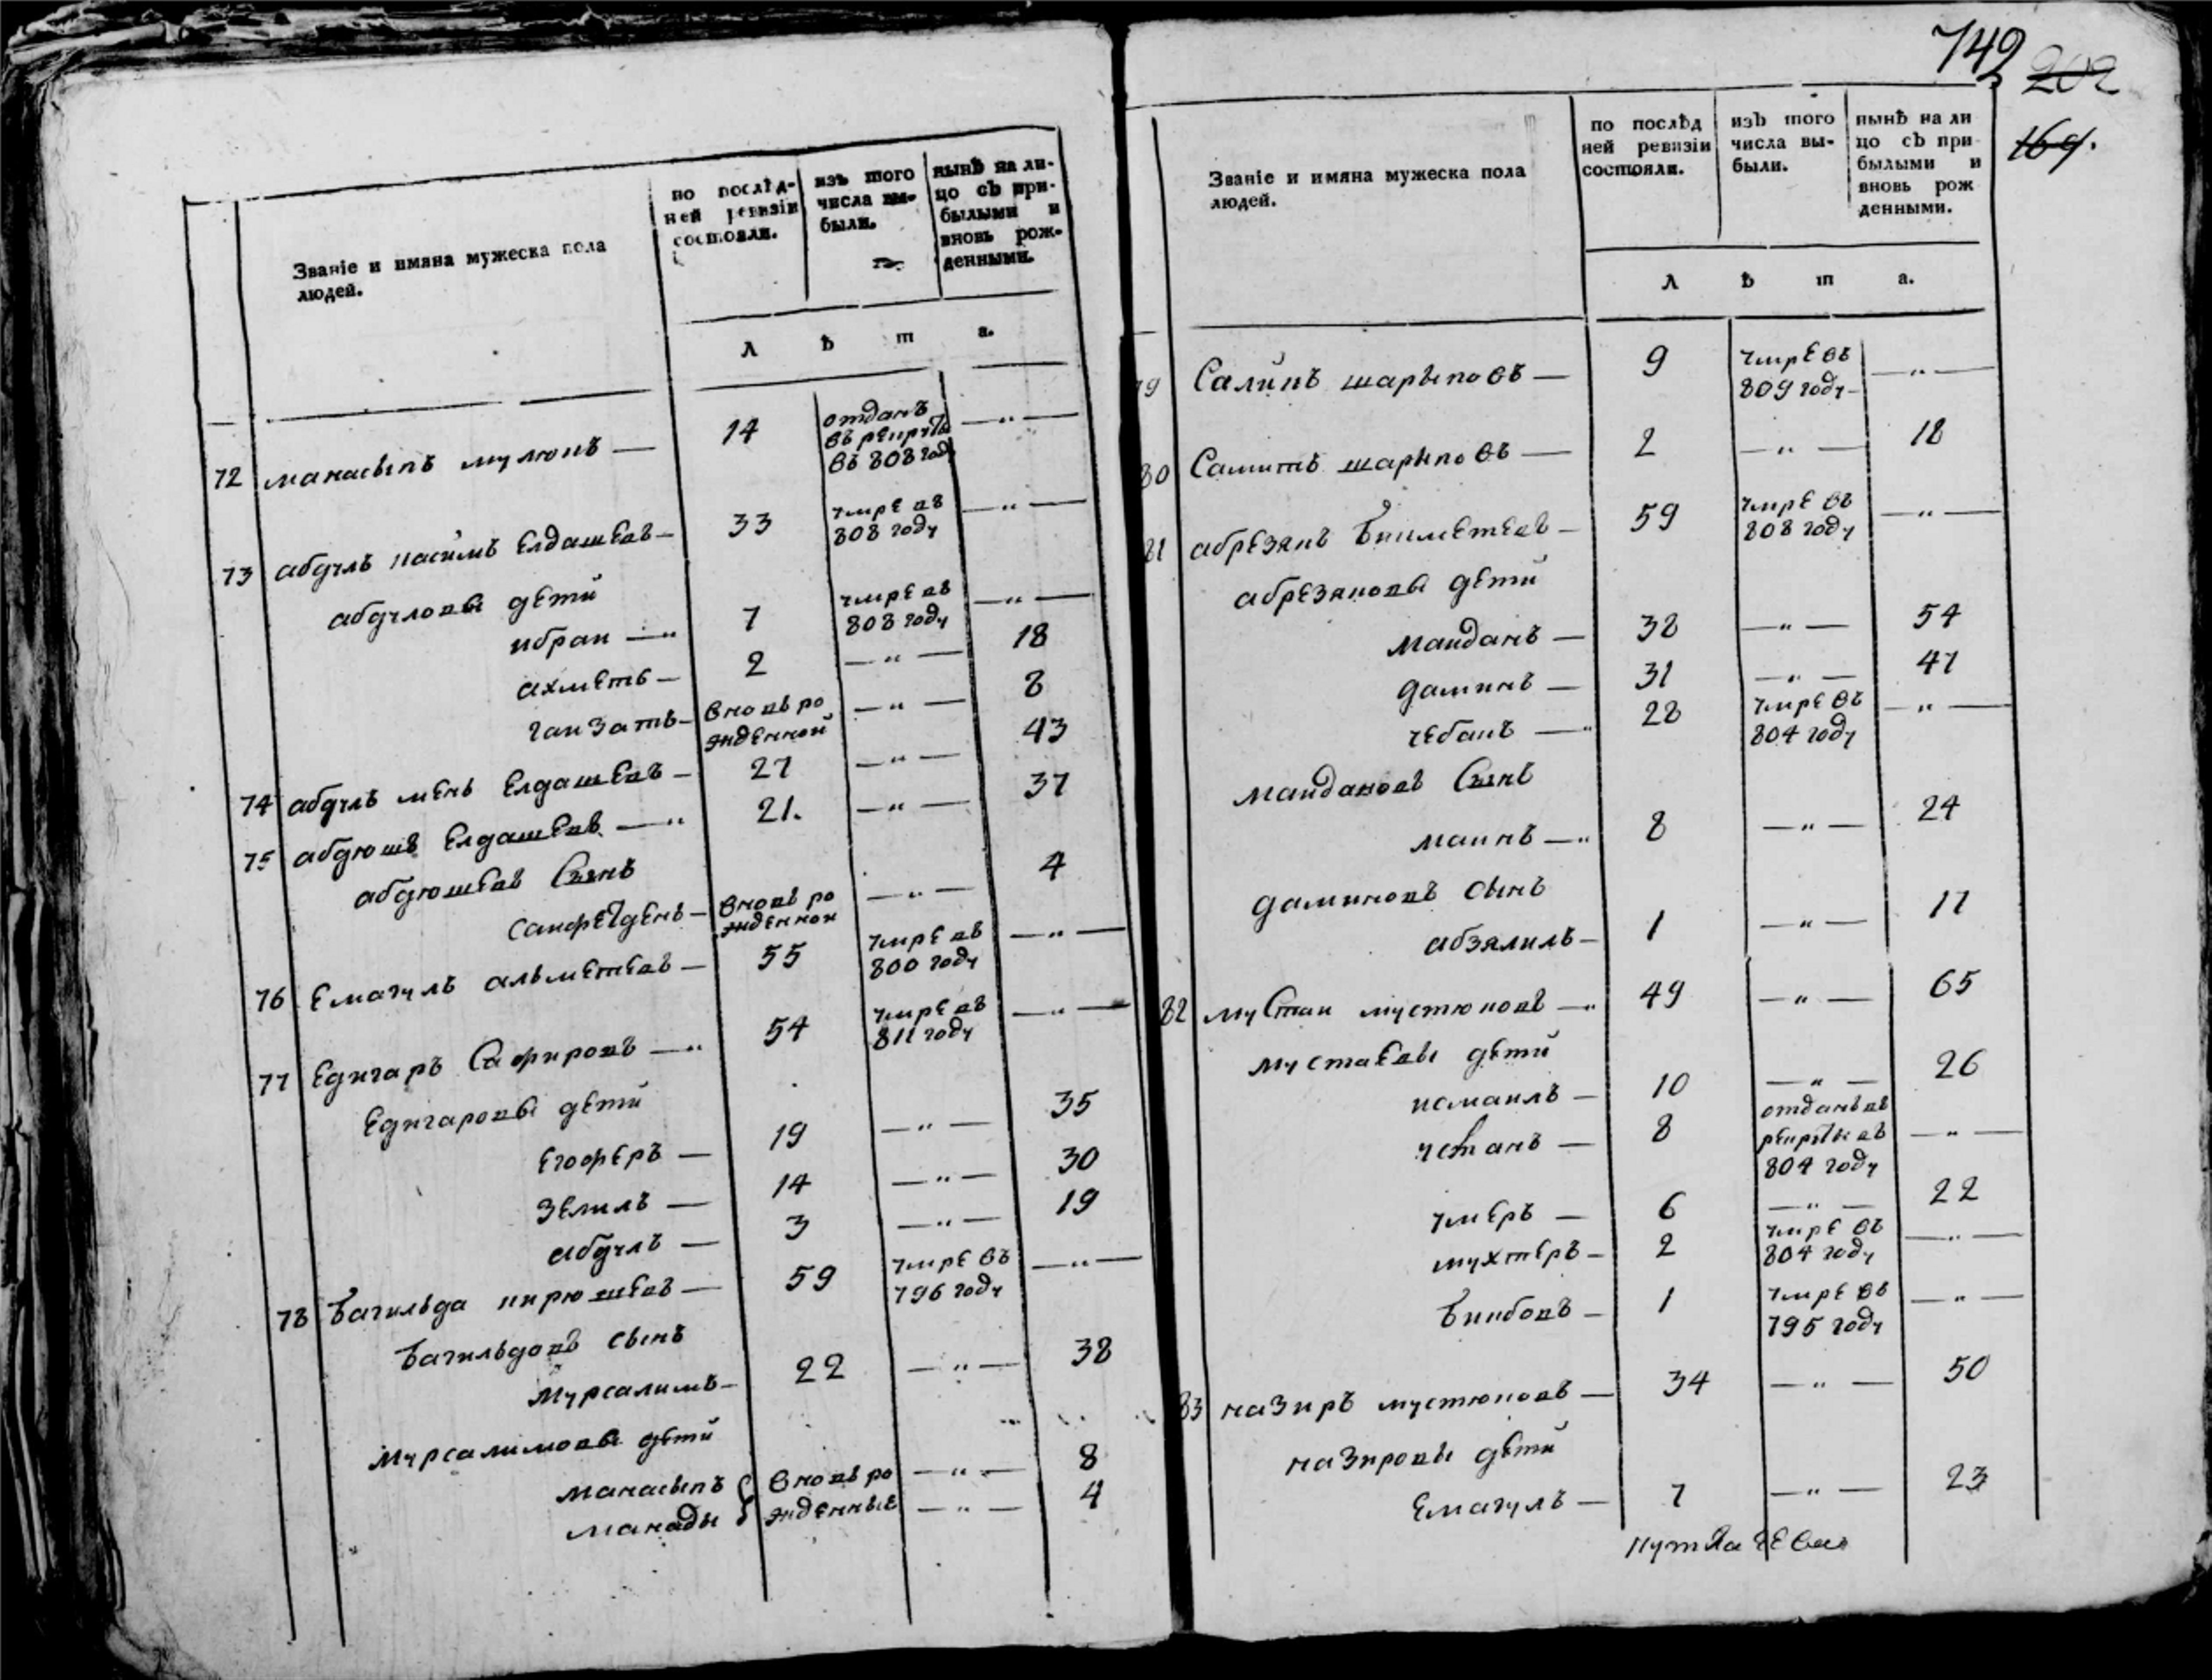 742
202
169.
Званіе и имяна мужеска пола
людей.
по послѣд-
ней ревизіи
состояли.
изъ того
числа вы-
были.
нынѣ на ли-
цо съ при-
былыми и
вновь рож-
денными.
Л ѣ т а.
72 манасыпъ мулюкъ — 14 отданъ въ рекруты въ 808 году — „ —
73 абдулъ касимъ Елдашевъ — 33 умре въ 808 году — „ —
абдуловы дети
ибраи — „ 7 умре въ 808 году — „ —
ахметь — 2 — „ — 18
гаизатъ — вновь рожденной — „ — 8
74 абдулъ менъ Елдашевъ — 27 — „ — 43
75 абдюшъ Елдашевъ — „ 21. — „ — 37
абдюшевъ Сынъ
саифейденъ — вновь рожденной — „ — 4
76 Емагулъ альметевъ — 55 умре въ 800 году — „ —
77 Едигаръ Сафировъ — „ 54 умре въ 811 году — „ —
Едигаровы дети
егоферъ — 19 — „ — 35
зелилъ — 14 — „ — 30
абдулъ — 3 — „ — 19
78 Багильда кирюшевъ — 59 умре въ 796 году — „ —
Багильдовъ сынъ
Мурсалимъ — 22 — „ — 38
Мурсалимовы дети
манасыпъ вновь ро — „ — 8
манады жденные — „ — 4
Званіе и имяна мужеска пола
людей.
по послѣд
ней ревизіи
состояли.
изъ того
числа вы-
были.
нынѣ на ли
цо съ при
былыми и
вновь рож
денными.
Л ѣ т а.
79 Салипъ шарыповъ — 9 умре въ 809 году — — „ —
80 Самитъ шарыповъ — 2 — „ — 18
81 абрезякъ Бикметевъ — 59 умре въ 808 году — „ —
абрезяковы дети
маиданъ — 38 — „ — 54
даминъ — 31 — „ — 47
чебанъ — „ 28 умре въ 804 году — „ —
маидановъ Сынъ
маинъ — „ 8 — „ — 24
даминовъ сынъ
абзялилъ — 1 — „ — 17
82 муСтаи мустюковъ — „ 49 — „ — 65
мустаевы дети
исмаилъ — 10 — „ — 26
устанъ — 8 отданъ въ рекруты въ 804 году — „ —
умеръ — 6 — „ — 22
мухтеръ — 2 умре въ 804 году — „ —
Бикбовъ — 1 умре въ 795 году — „ —
83 назиръ мустюковъ — 34 — „ — 50
назировы дети
Емагулъ — 7 — „ — 23